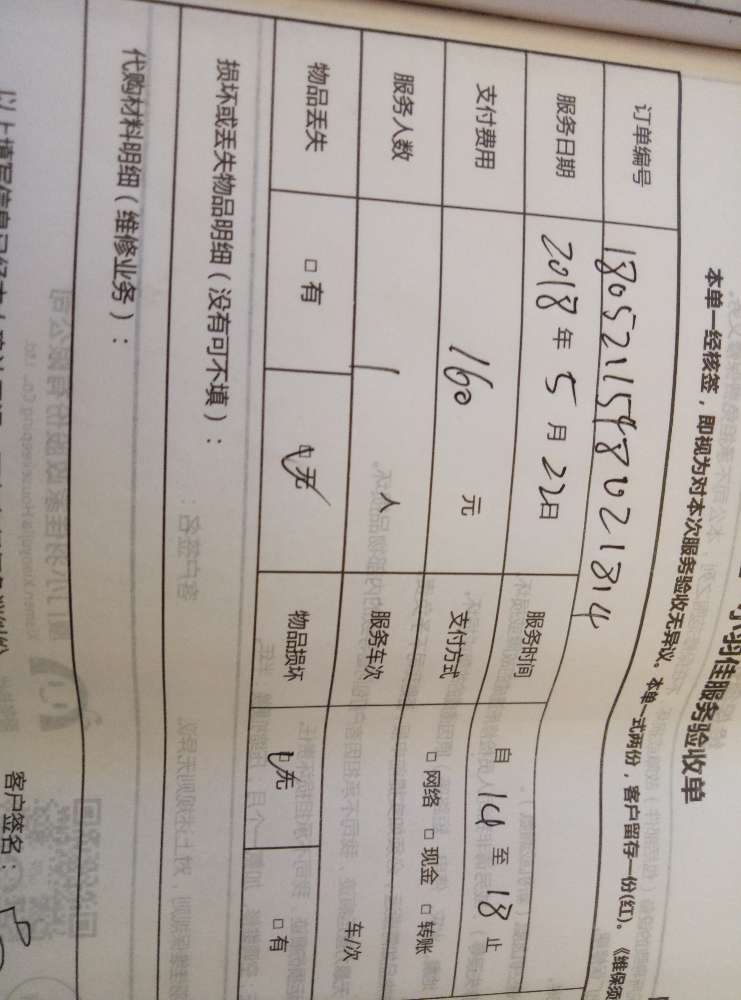 小羽佳服务验收单
本单一经核签，即视为对本次服务验收无异议。本单一式两份，客户留存一份(红)。《维保须
订单编号 1805211548021814
服务日期 2018年5月22日 服务时间 自14至18止
支付费用 160元 支付方式 □网络 □现金 □转账
服务人数 1人 服务车次 车/次
物品丢失 □有 ☑无 物品损坏 ☑无 □有
损坏或丢失物品明细（没有可不填）：
代购材料明细（维修业务）：
客户签名：